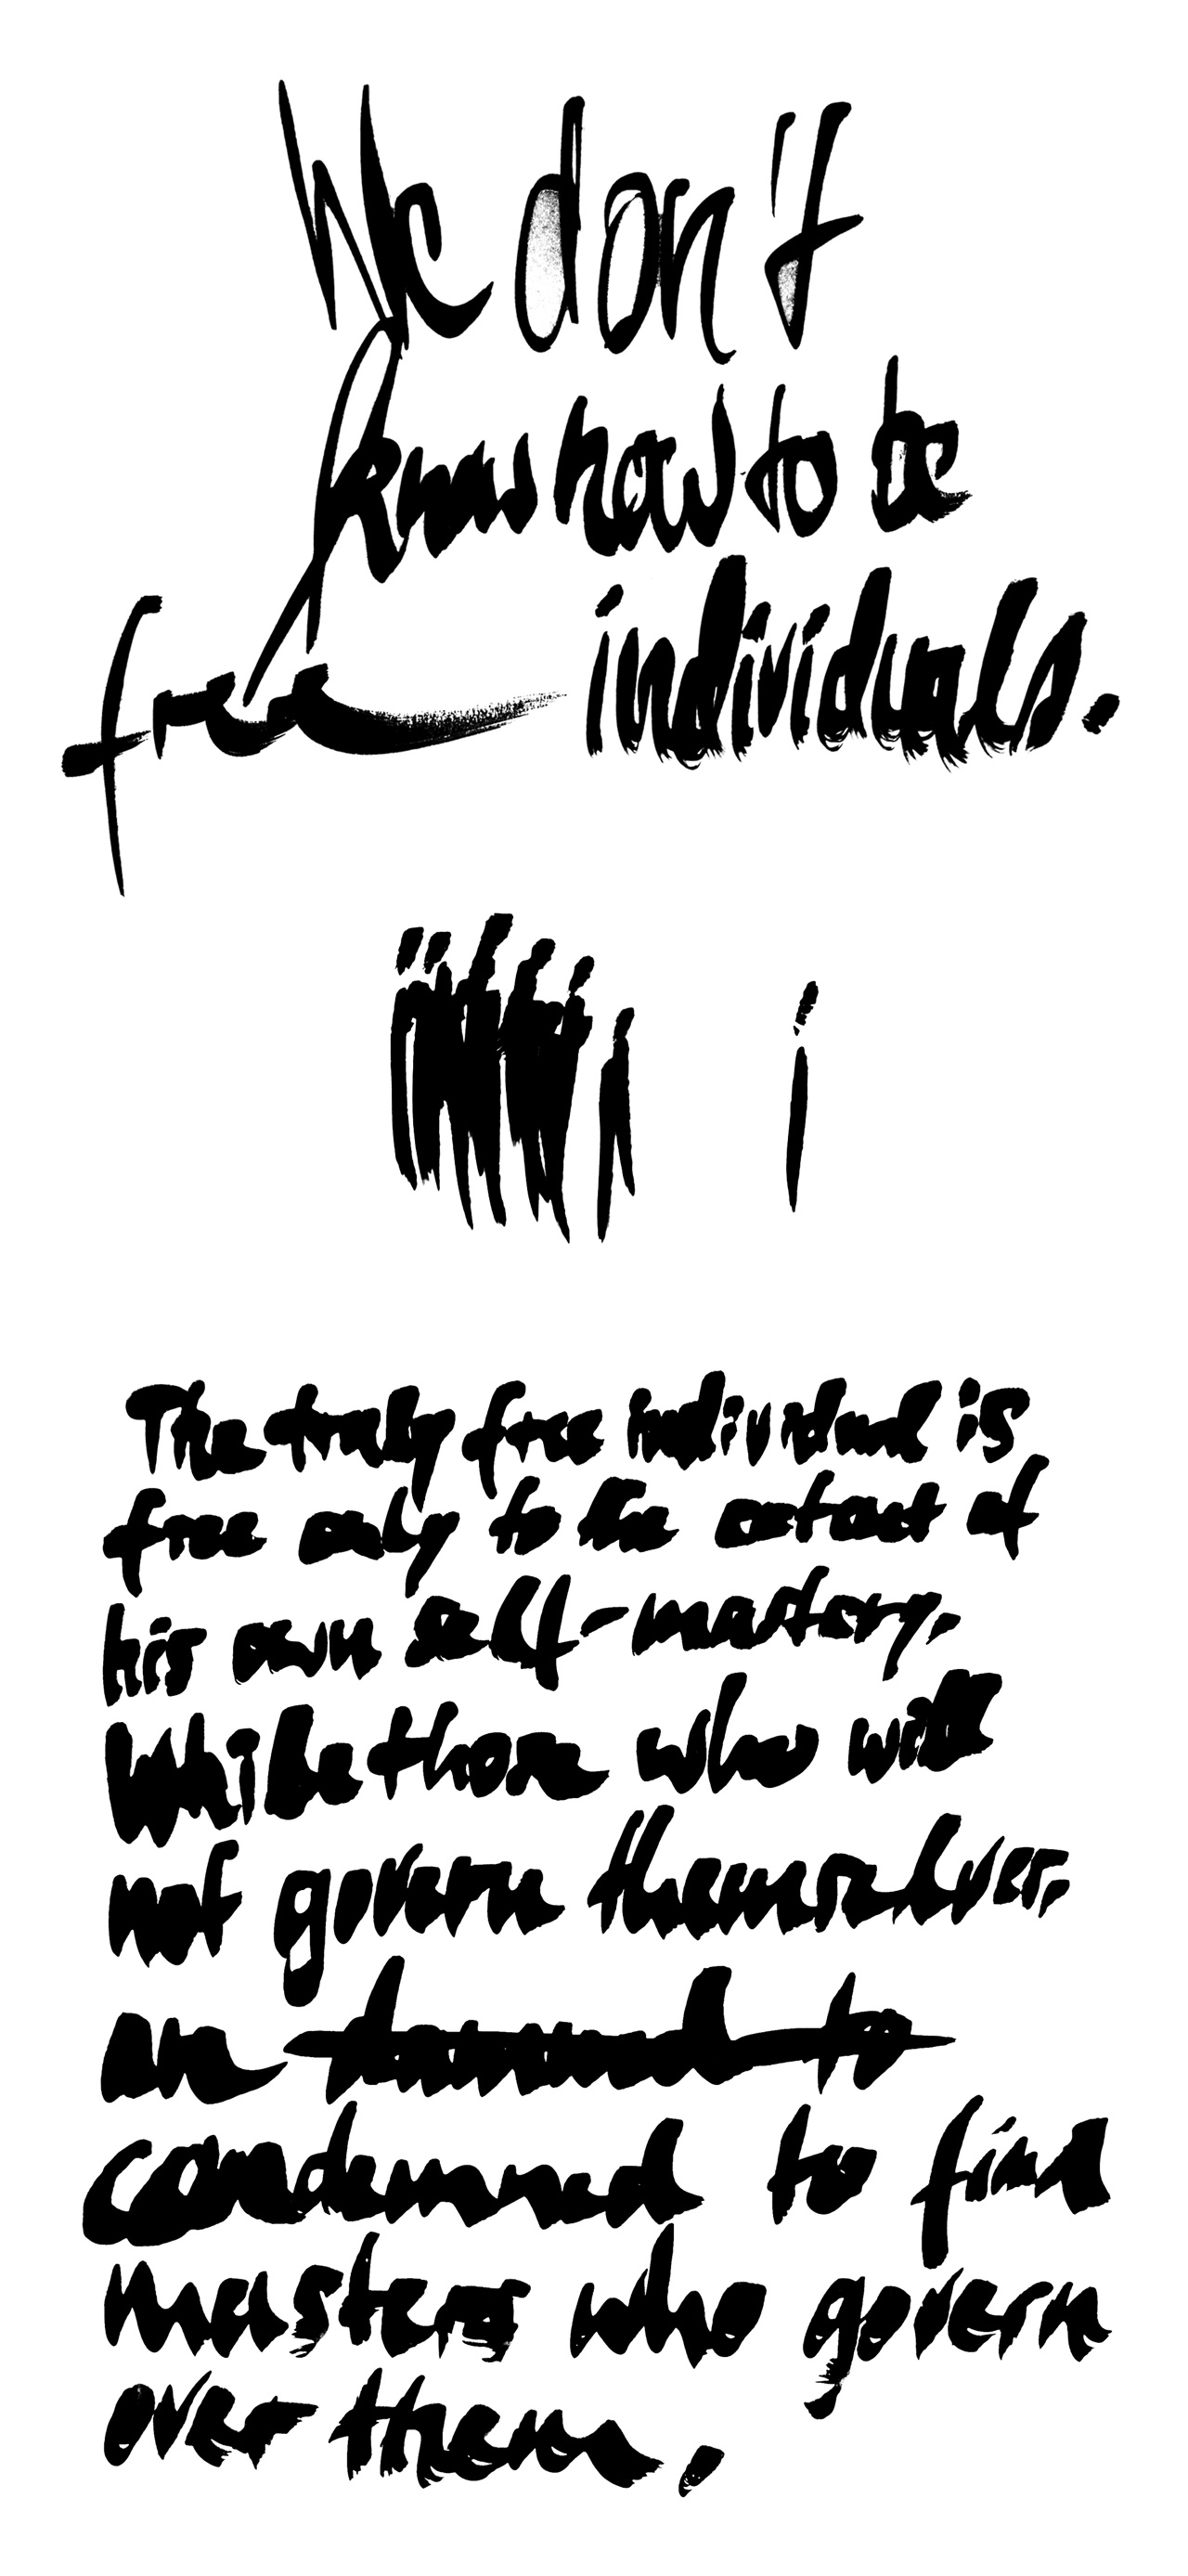 We don't
know how to be
free individuals.
iiiiii i
The truly free individual is
free only to the extent of
his own self-mastery.
While those who will
not govern themselves,
are damned to
condemned to find
masters who govern
over them.